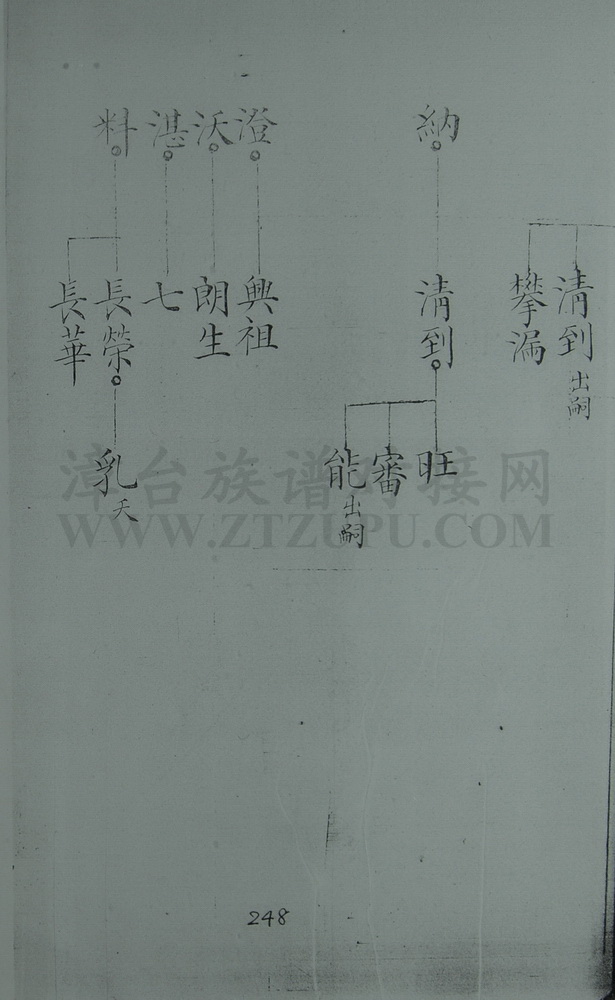 納
澄
沃
湛
料
清到 出嗣
攀漏
清到
興祖
朗生
七
長榮
長華
旺
審
能 出嗣
乳 夭
漳台族谱对接网
WWW.ZTZUPU.COM
248